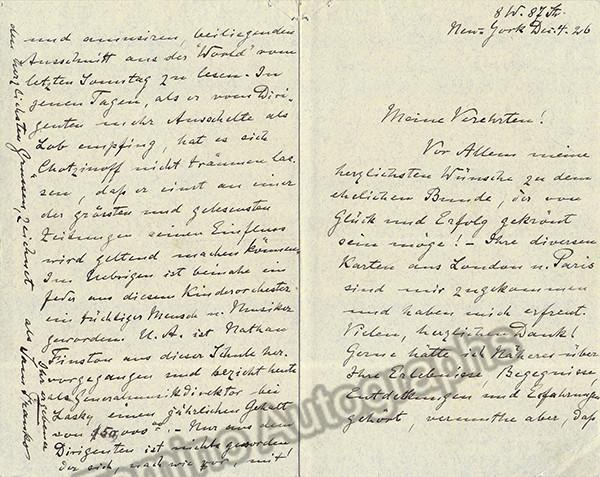 8 W. 87 Str.
New-York Dec. 4. 26
Meine Verehrten!
Vor Allem meine
herzlichsten Wünsche zu dem
ehelichen Bunde, der von
Glück und Erfolg gekrönt
sein möge! – Ihre diversen
Karten aus London u. Paris
sind mir zugekommen
und haben mich erfreut.
Vielen, herzlichen Dank!
Gerne hätte ich Näheres über
Ihre Erlebnisse, Begegnisse,
Entdeckungen und Erfahrungen
gehört, vermuthe aber, daß
und amusiren, beiliegenden
Ausschnitt aus der 'World' vom
letzten Sonntag zu lesen. In
jenen Tagen, als er vom Diri-
genten mehr Ausschelte als
Lob empfing, hat es sich
Chotzinoff nicht träumen las-
sen, daß er einst an einer
der größten und gelesensten
Zeitungen seinen Einfluss
wird geltend machen können.
Im Uebrigen ist beinahe ein
Jeder aus diesem Kinderorchester
ein tüchtiger Mensch u. Musiker
geworden. U. A. ist Nathan
Finston aus dieser Schule her-
vorgegangen und bezieht heute
als Generalmusikdirektor bei
Lasky einen jährlichen Gehalt
von $50,000. – Nur aus dem
Dirigenten ist nichts geworden
der sich, nach wie vor, mit
den herzlichsten Grüssen, zeichnet als
Ihr ergebener
Sam Franko
Tamino Autographs